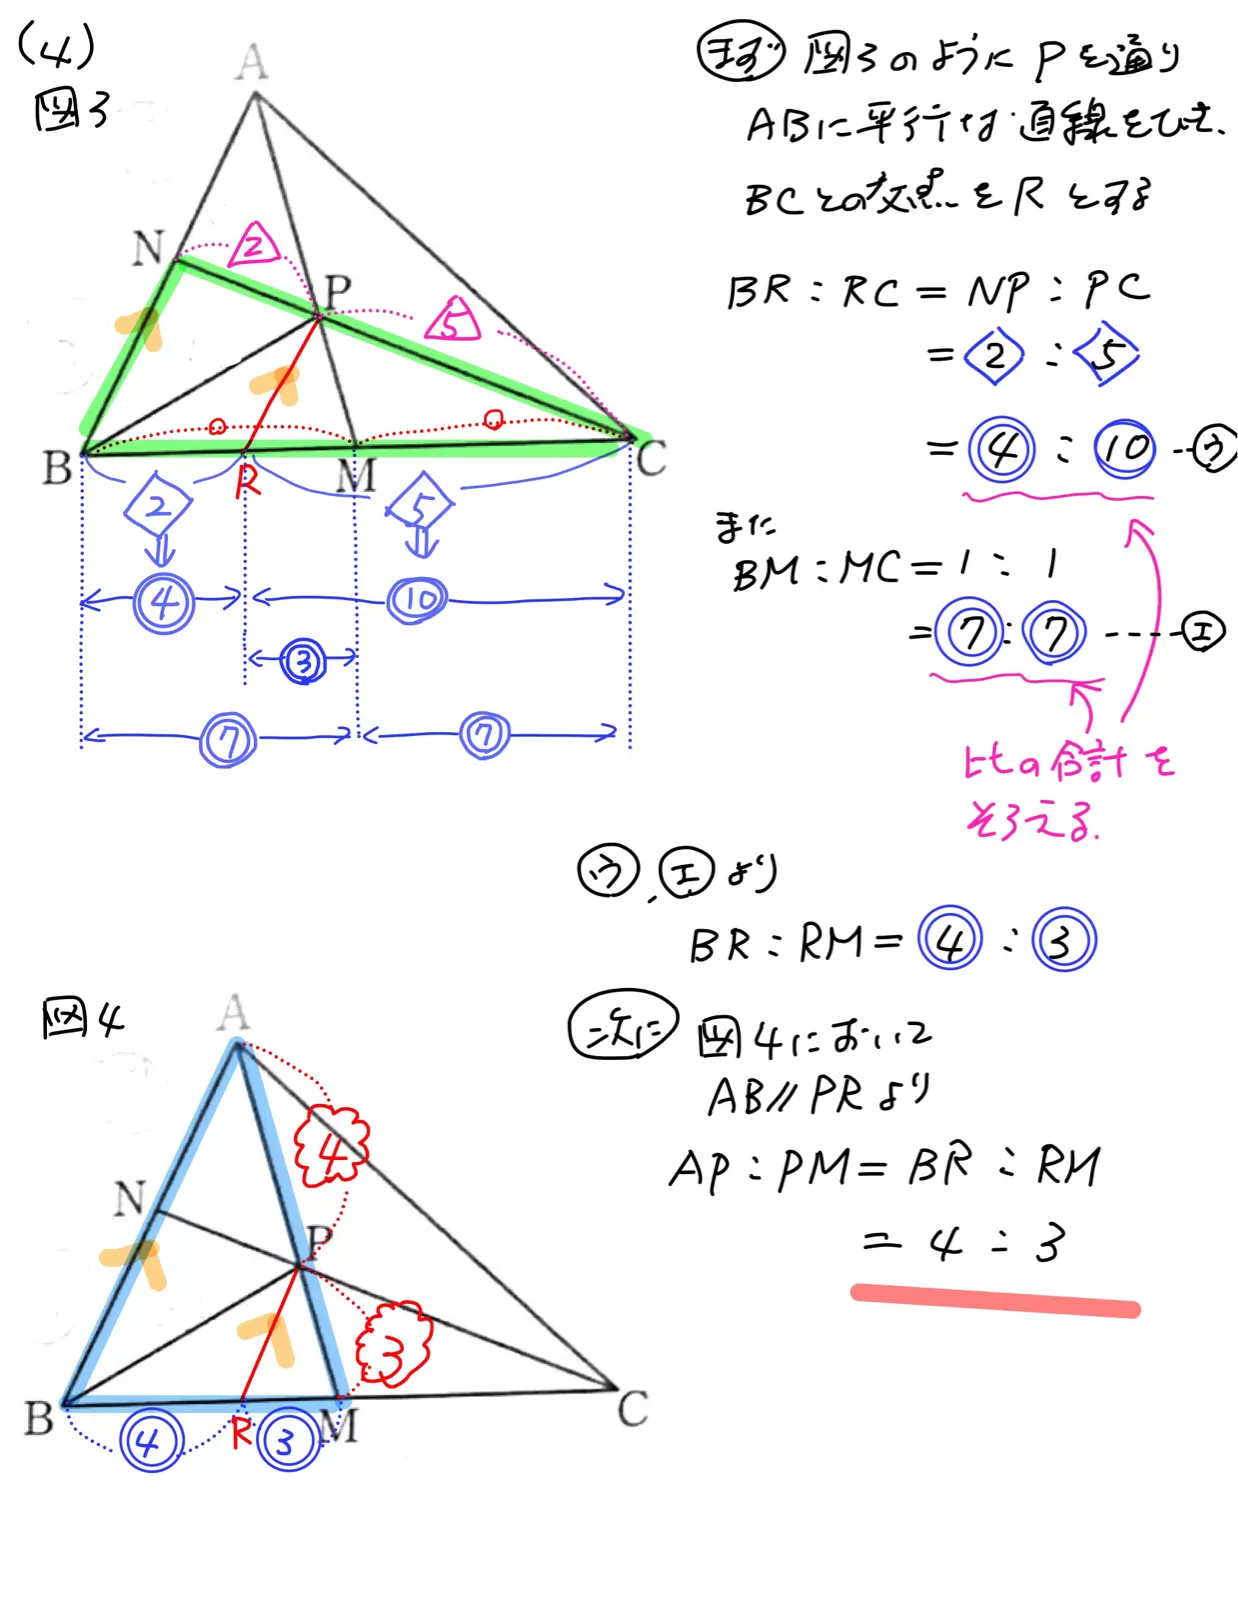 (4)
図3
A
N
2
P
5
B
R
M
C
2
5
4
10
3
7
7
まず 図3のように Pを通り
ABに平行な直線をひき、
BCとの交点をRとする
BR:RC=NP:PC
=2:5
=4:10 --- ウ
また
BM:MC=1:1
=7:7 ----- エ
比の合計を
そろえる.
ウ, エより
BR:RM=4:3
図4
A
N
P
4
3
B
R
M
C
4
3
次に 図4において
AB//PRより
AP:PM=BR:RM
=4:3